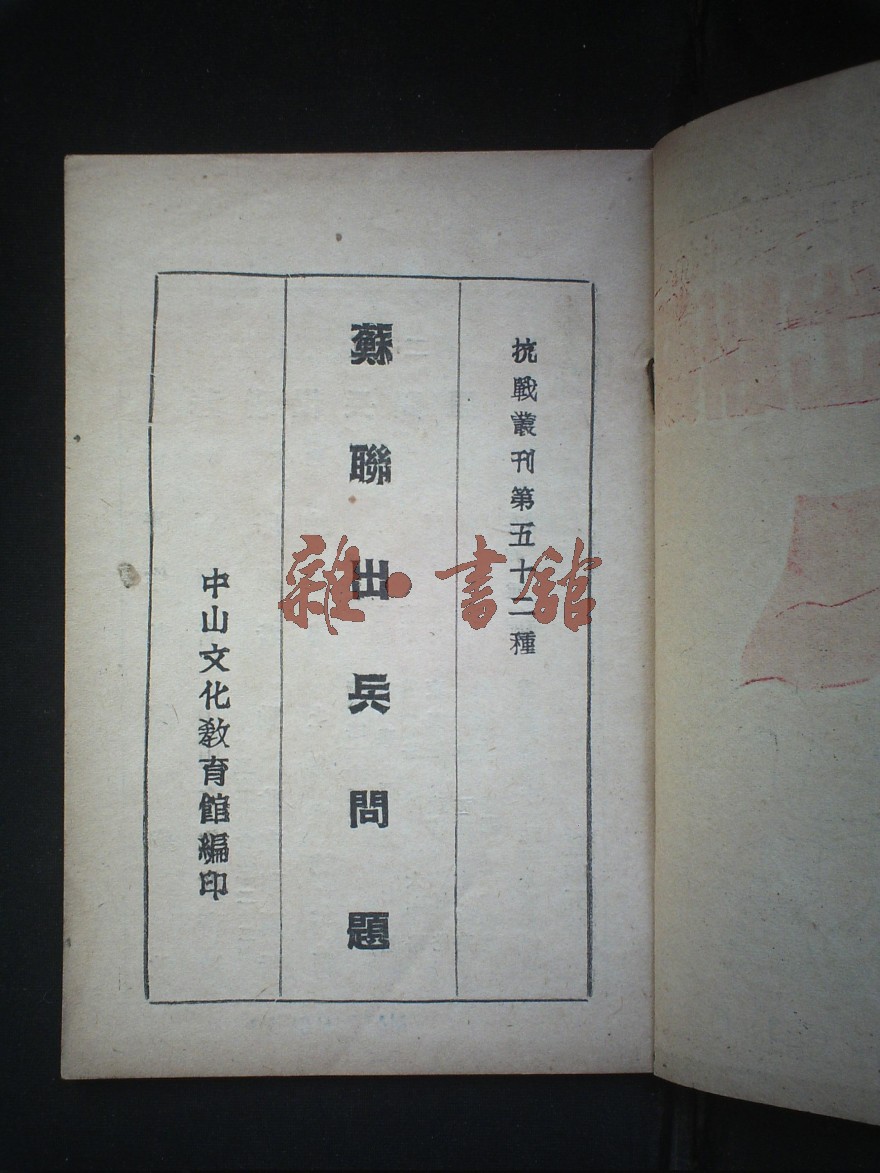 抗戰叢刊第五十二種
蘇聯出兵問題
中山文化教育館編印
雜·書館